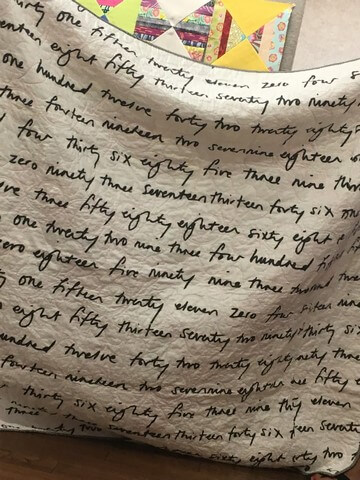 thirty one fifteen twenty eleven zero four
seventeen eight fifty thirteen seventy two ninety
one hundred twelve forty two twenty eighty
three fourteen nineteen two sevennine eighteen
four thirty six eighty five three nine
zero ninety three seventeen thirteen forty six
three fifty eighty eighteen sixty eight
one twenty two nine three four hundred
zero eighteen five ninety nine three
one fifteen twenty eleven zero four
eight fifty thirteen seventy two ninety thirty
hundred twelve forty two twenty eighty
fourteen nineteen two sevennine fifty
thirty six eighty five three nine eleven
three two seventeen thirteen forty six seventy
sixty eight forty two